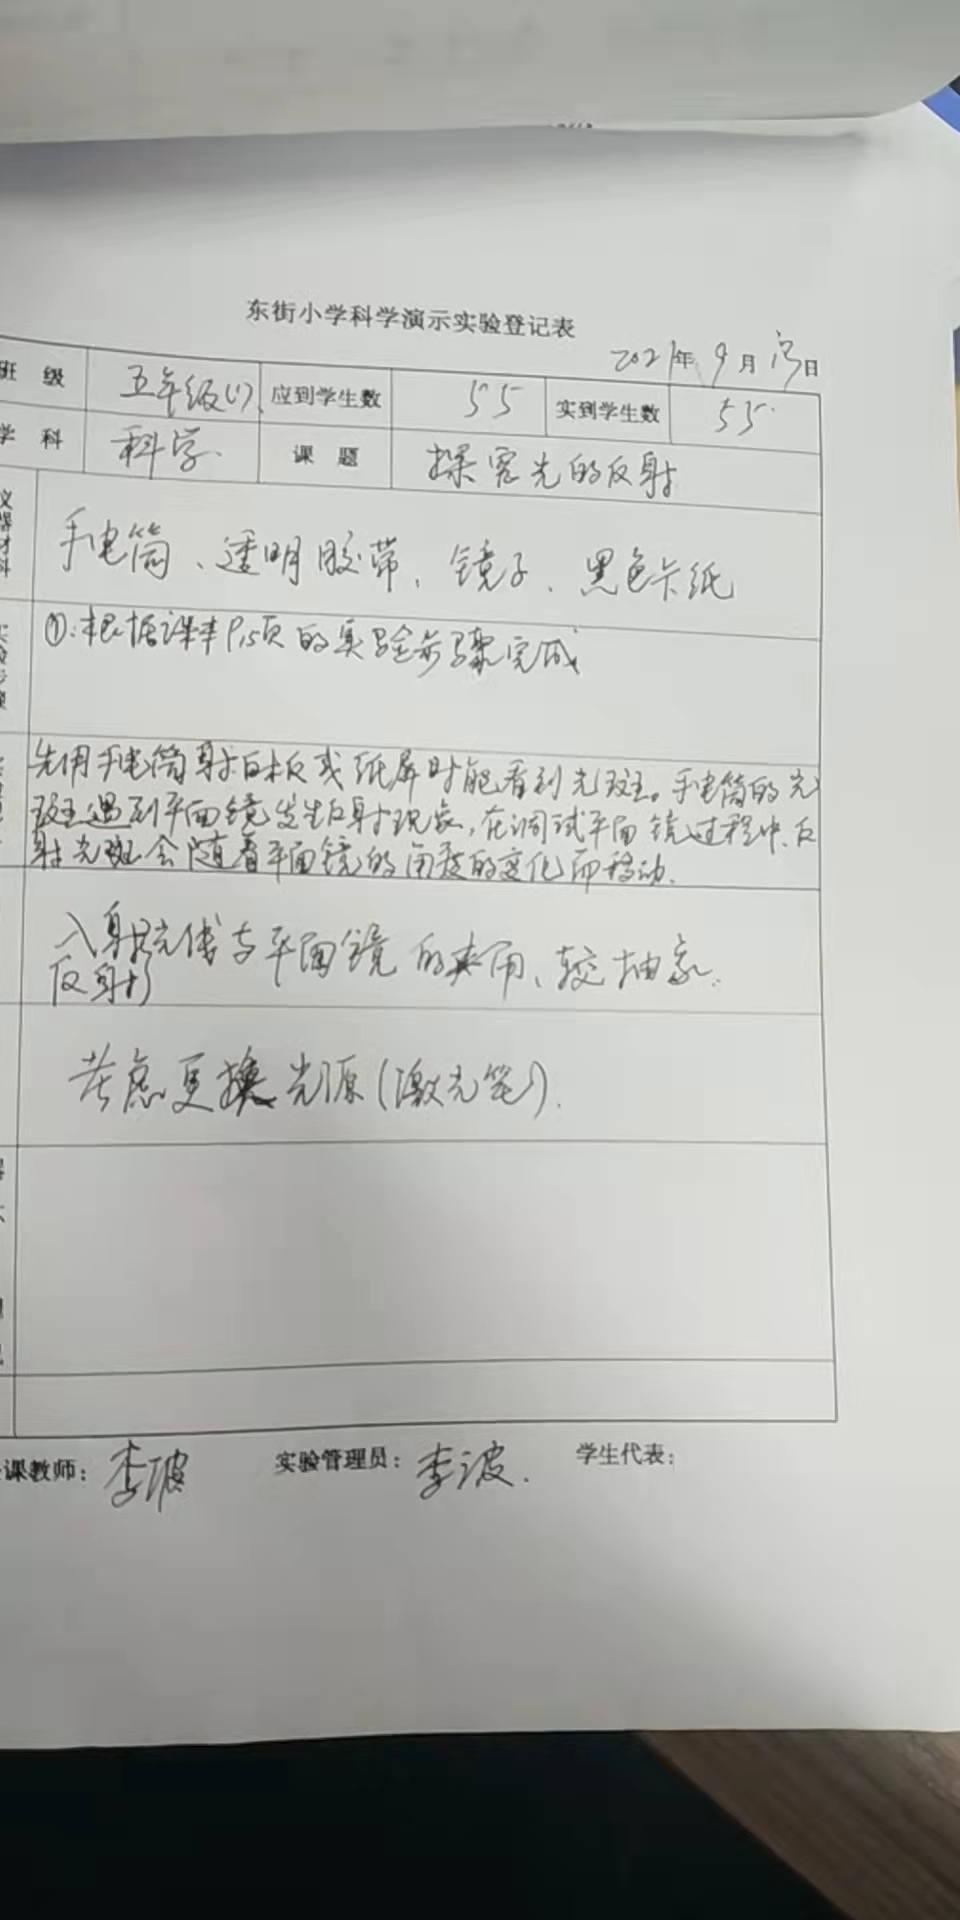 东街小学科学演示实验登记表
2021年9月 日
班 级 五年级(1) 应到学生数 55 实到学生数 55
学 科 科学 课 题 探密光的反射
手电筒、透明胶带、镜子、黑色卡纸
①.根据课本P15页的实验步骤完成
先用手电筒射白板或纸屏时能看到光斑。手电筒的光
斑遇到平面镜发生反射现象,在调试平面镜过程中,反
射光斑会随着平面镜的角度的变化而移动.
入射光线与平面镜的夹角、较抽象.
反射
考虑更换光源(激光笔).
课教师: 李波 实验管理员: 李波. 学生代表: